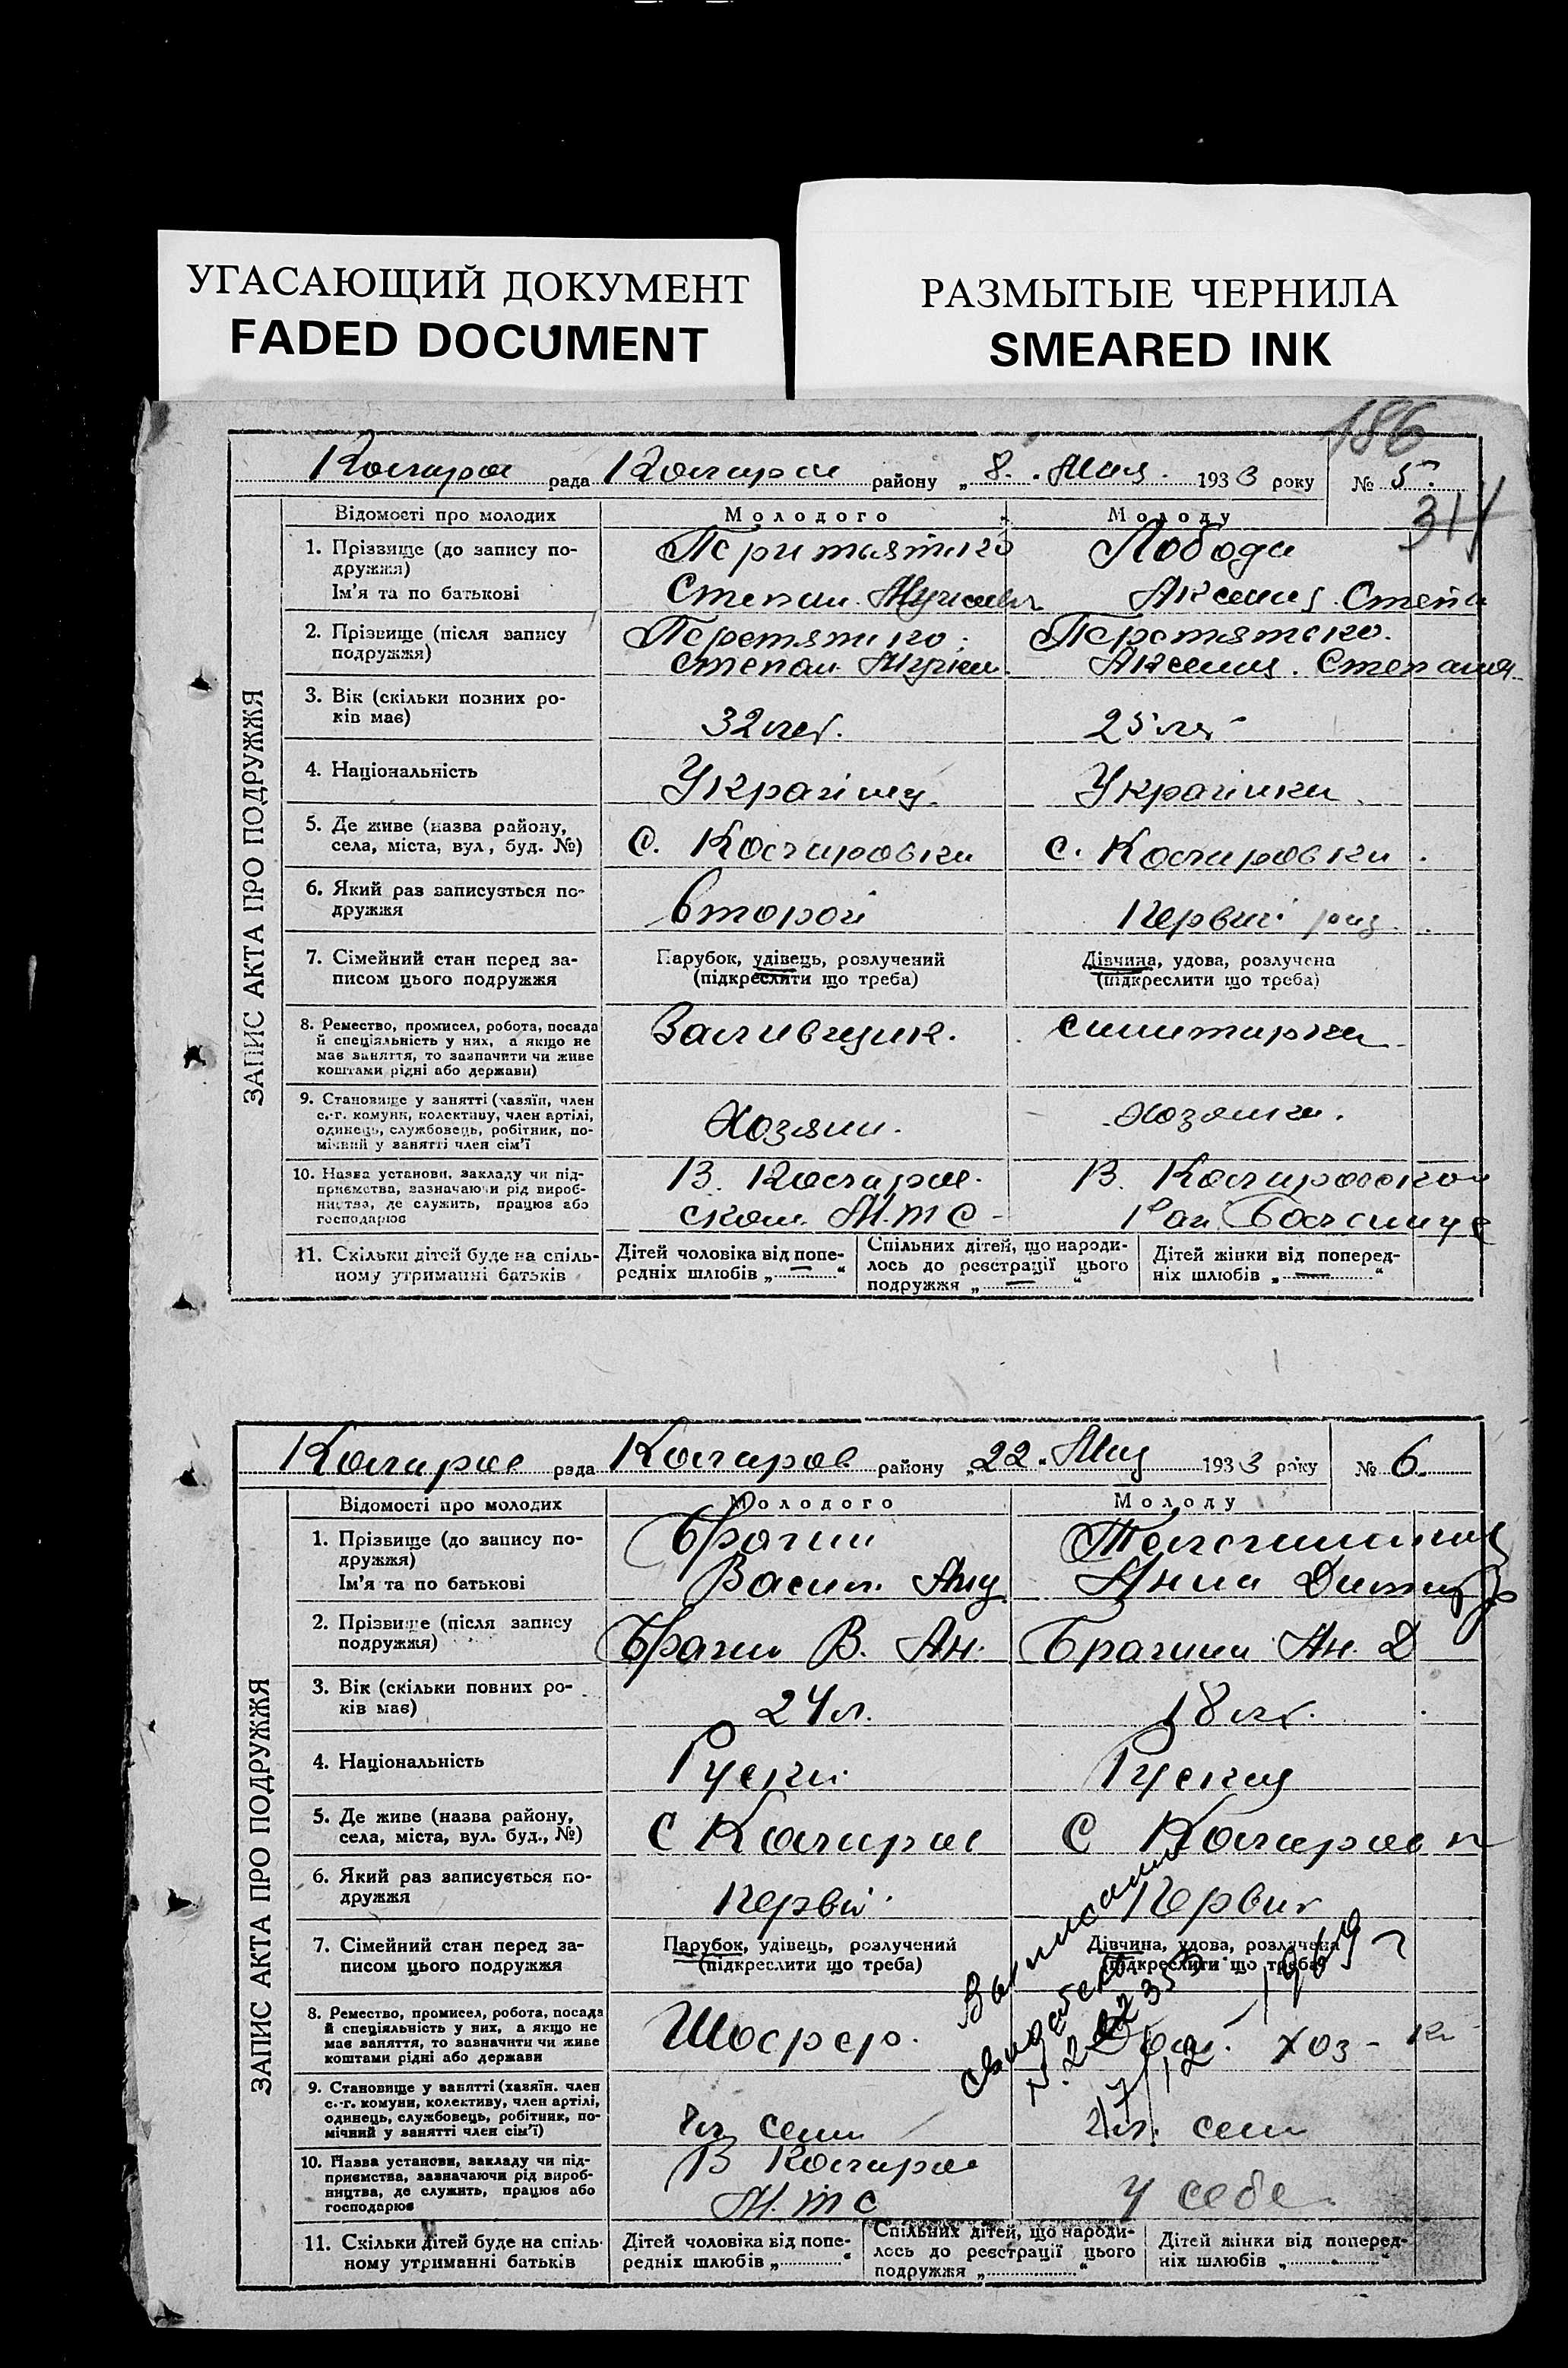 УГАСАЮЩИЙ ДОКУМЕНТ
FADED DOCUMENT
РАЗМЫТЫЕ ЧЕРНИЛА
SMEARED INK
186
314
рада району „8.“ Мая 1933 року № 5.
ЗАПИС АКТА ПРО ПОДРУЖЖЯ
Відомості про молодих Молодого Молоду
1. Прізвище (до запису по-
дружжя) Лобода
Ім'я та по батькові Степан Аксения Степа
2. Прізвище (після запису Перетятко Перетятко.
подружжя) Степан Аксения. Степания
3. Вік (скільки позних ро-
ків має) 32 лет. 25 лет
4. Національність Українец Українка
5. Де живе (назва району,
села, міста, вул, буд. №) С. с.
6. Який раз записузться по-
дружжя второй первий раз
7. Сімейний стан перед за- Парубок, удівець, розлучений Дівчина, удова, розлучена
писом цього подружжя (підкреслити що треба) (підкреслити що треба)
8. Ремество, промисел, робота, посада Заливщик. санитарка
й спеціяльність у них, а якщо не
має заняття, то зазначити чи живе
коштами рідні або держави)
9. Становище у занятті (хазяїн, член
с.-г. комуни, колективу, член артілі,
одинець, службовець, робітник, по- Хозяин. Хозяйка.
мічний у занятті член сім'ї
10. Назва установи, закладу чи під- В. В.
приємства, зазначаючи рід вироб-
ництва, де служить, працює або ском М.Т.С Рай Больнице
господарює
11. Скільки дітей буде на спіль- Дітей чоловіка від попе- Спільних дітей, що народи- Дітей жінки від поперед-
ному утриманні батьків редніх шлюбів „—“ лось до реєстрації цього ніх шлюбів „—“
подружжя „—“
рада району „22“ Мая 1933 року № 6.
ЗАПИС АКТА ПРО ПОДРУЖЖЯ
Відомості про молодих Молодого Молоду
1. Прізвище (до запису по- Брагин
дружжя)
Ім'я та по батькові Васил. Анд Анна Дмитр
2. Прізвище (після запису
подружжя) Брагин В. Ан. Брагина Ан. Д
3. Вік (скільки повних ро-
ків має) 24 л. 18 лет.
4. Національність Руский Руская
5. Де живе (назва району,
села, міста, вул. буд., №) С С
6. Який раз записується по-
дружжя первий Первий
7. Сімейний стан перед за- Парубок, удівець, розлучений Дівчина, удова, розлучена
писом цього подружжя (підкреслити що треба) (підкреслити що треба)
8. Ремество, промисел, робота, посада Шофер. Дом. хоз-ка
й спеціяльність у них, а якщо не
має заняття, то вазначити чи живе
коштами рідні або держави
9. Становище у ванятті (хазяїн. член
с.-г. комуни, колективу, член артілі,
одинець, службовець, робітник, по- чл семи чл. семи
мічний у занятті член сім'ї)
10. Назва установи, закладу чи під- В
приємства, зазначаючи рід вироб-
ництва, де служить, працює або М.Т.С у себе
господарює
11. Скільки дітей буде на спіль- Дітей чоловіка від попе- Спільних дітей, що народи- Дітей жінки від поперед-
ному утриманні батьків редніх шлюбів „“ лось до реєстрації цього ніх шлюбів „“
подружжя „“
Выписано
1969 г